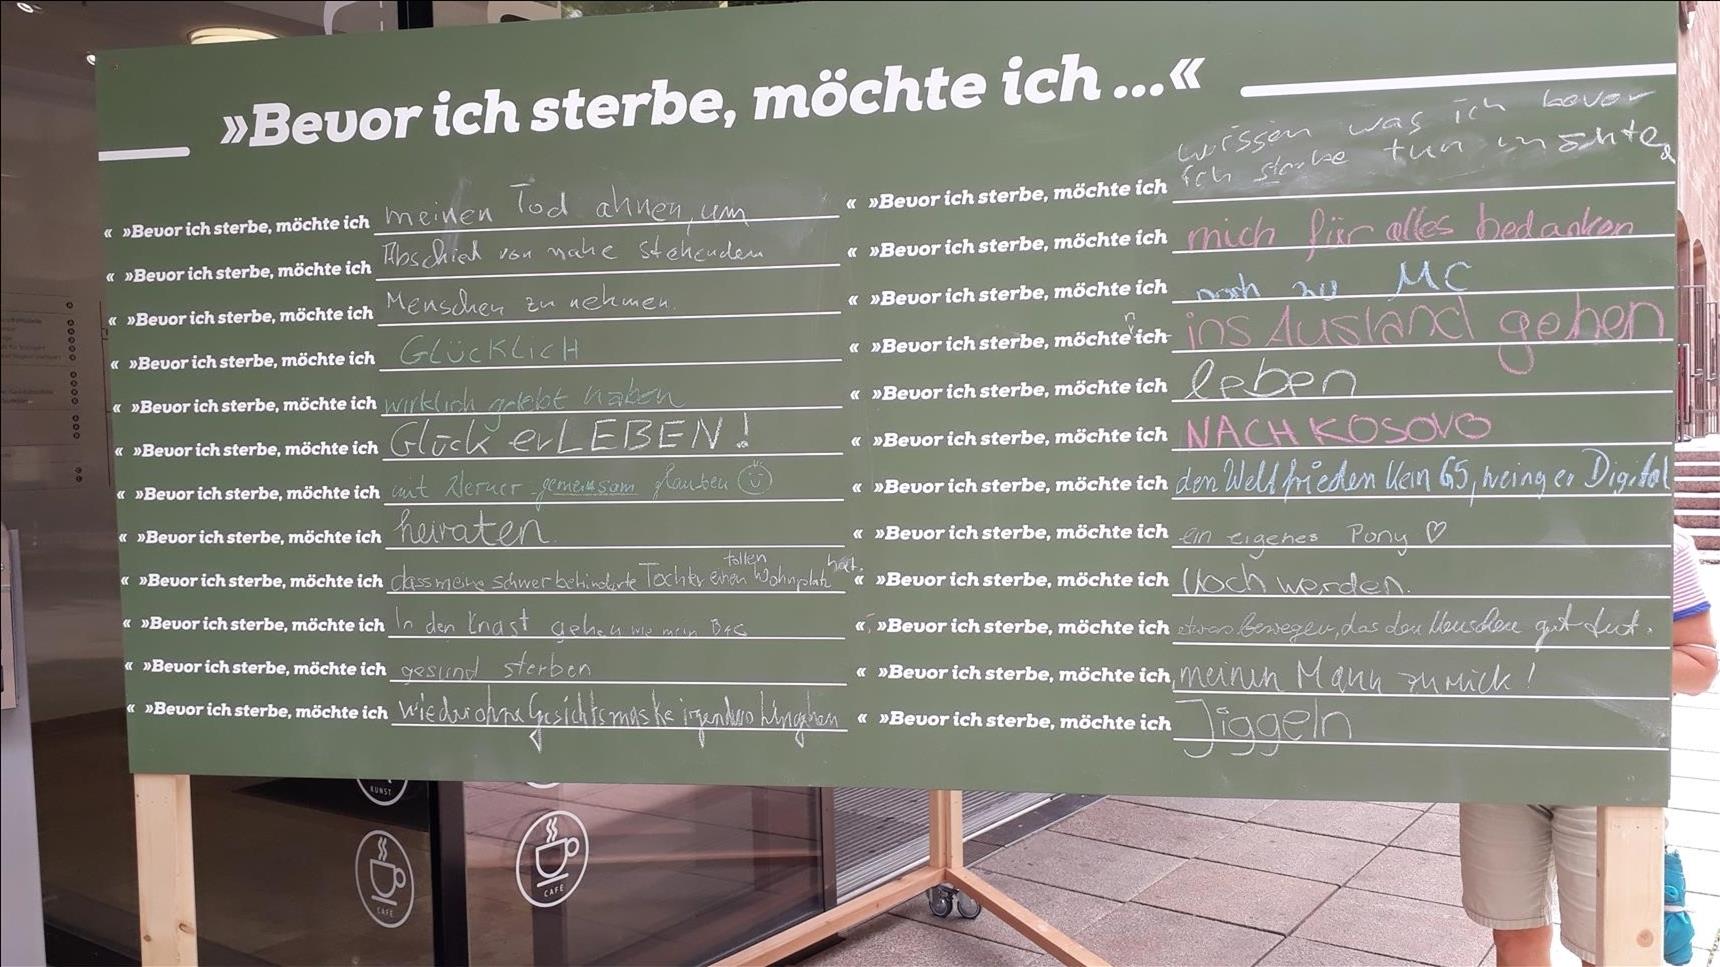 »Bevor ich sterbe, möchte ich ...«
« »Bevor ich sterbe, möchte ich meinen Tod ahnen, um
« »Bevor ich sterbe, möchte ich Abschied von nahe stehenden
« »Bevor ich sterbe, möchte ich Menschen zu nehmen.
« »Bevor ich sterbe, möchte ich GLÜCKLICH
« »Bevor ich sterbe, möchte ich wirklich gelebt haben
« »Bevor ich sterbe, möchte ich Glück erLEBEN!
« »Bevor ich sterbe, möchte ich mit Werner gemeinsam glauben
« »Bevor ich sterbe, möchte ich heiraten.
« »Bevor ich sterbe, möchte ich dass meine schwer behinderte Tochter einen tollen Wohnplatz hat.
« »Bevor ich sterbe, möchte ich In den Knast gehen wie mein
« »Bevor ich sterbe, möchte ich gesund sterben
« »Bevor ich sterbe, möchte ich wieder ohne Gesichtsmaske irgendwo hingehen
wissen was ich bevor
ich sterbe tun möchte
« »Bevor ich sterbe, möchte ich
« »Bevor ich sterbe, möchte ich mich für alles bedanken
« »Bevor ich sterbe, möchte ich noch zu MC
« »Bevor ich sterbe, möchten ich ins Ausland gehen
« »Bevor ich sterbe, möchte ich leben
« »Bevor ich sterbe, möchte ich NACH KOSOVO
« »Bevor ich sterbe, möchte ich den Weltfrieden kein G5, weinger Digital
« »Bevor ich sterbe, möchte ich ein eigenes Pony ♡
« »Bevor ich sterbe, möchte ich Koch werden.
« »Bevor ich sterbe, möchte ich etwas bewegen, das den Menschen gut tut.
« »Bevor ich sterbe, möchte ich meinen Mann zurück!
« »Bevor ich sterbe, möchte ich Jiggeln
KUNST
CAFÉ
CAFÉ